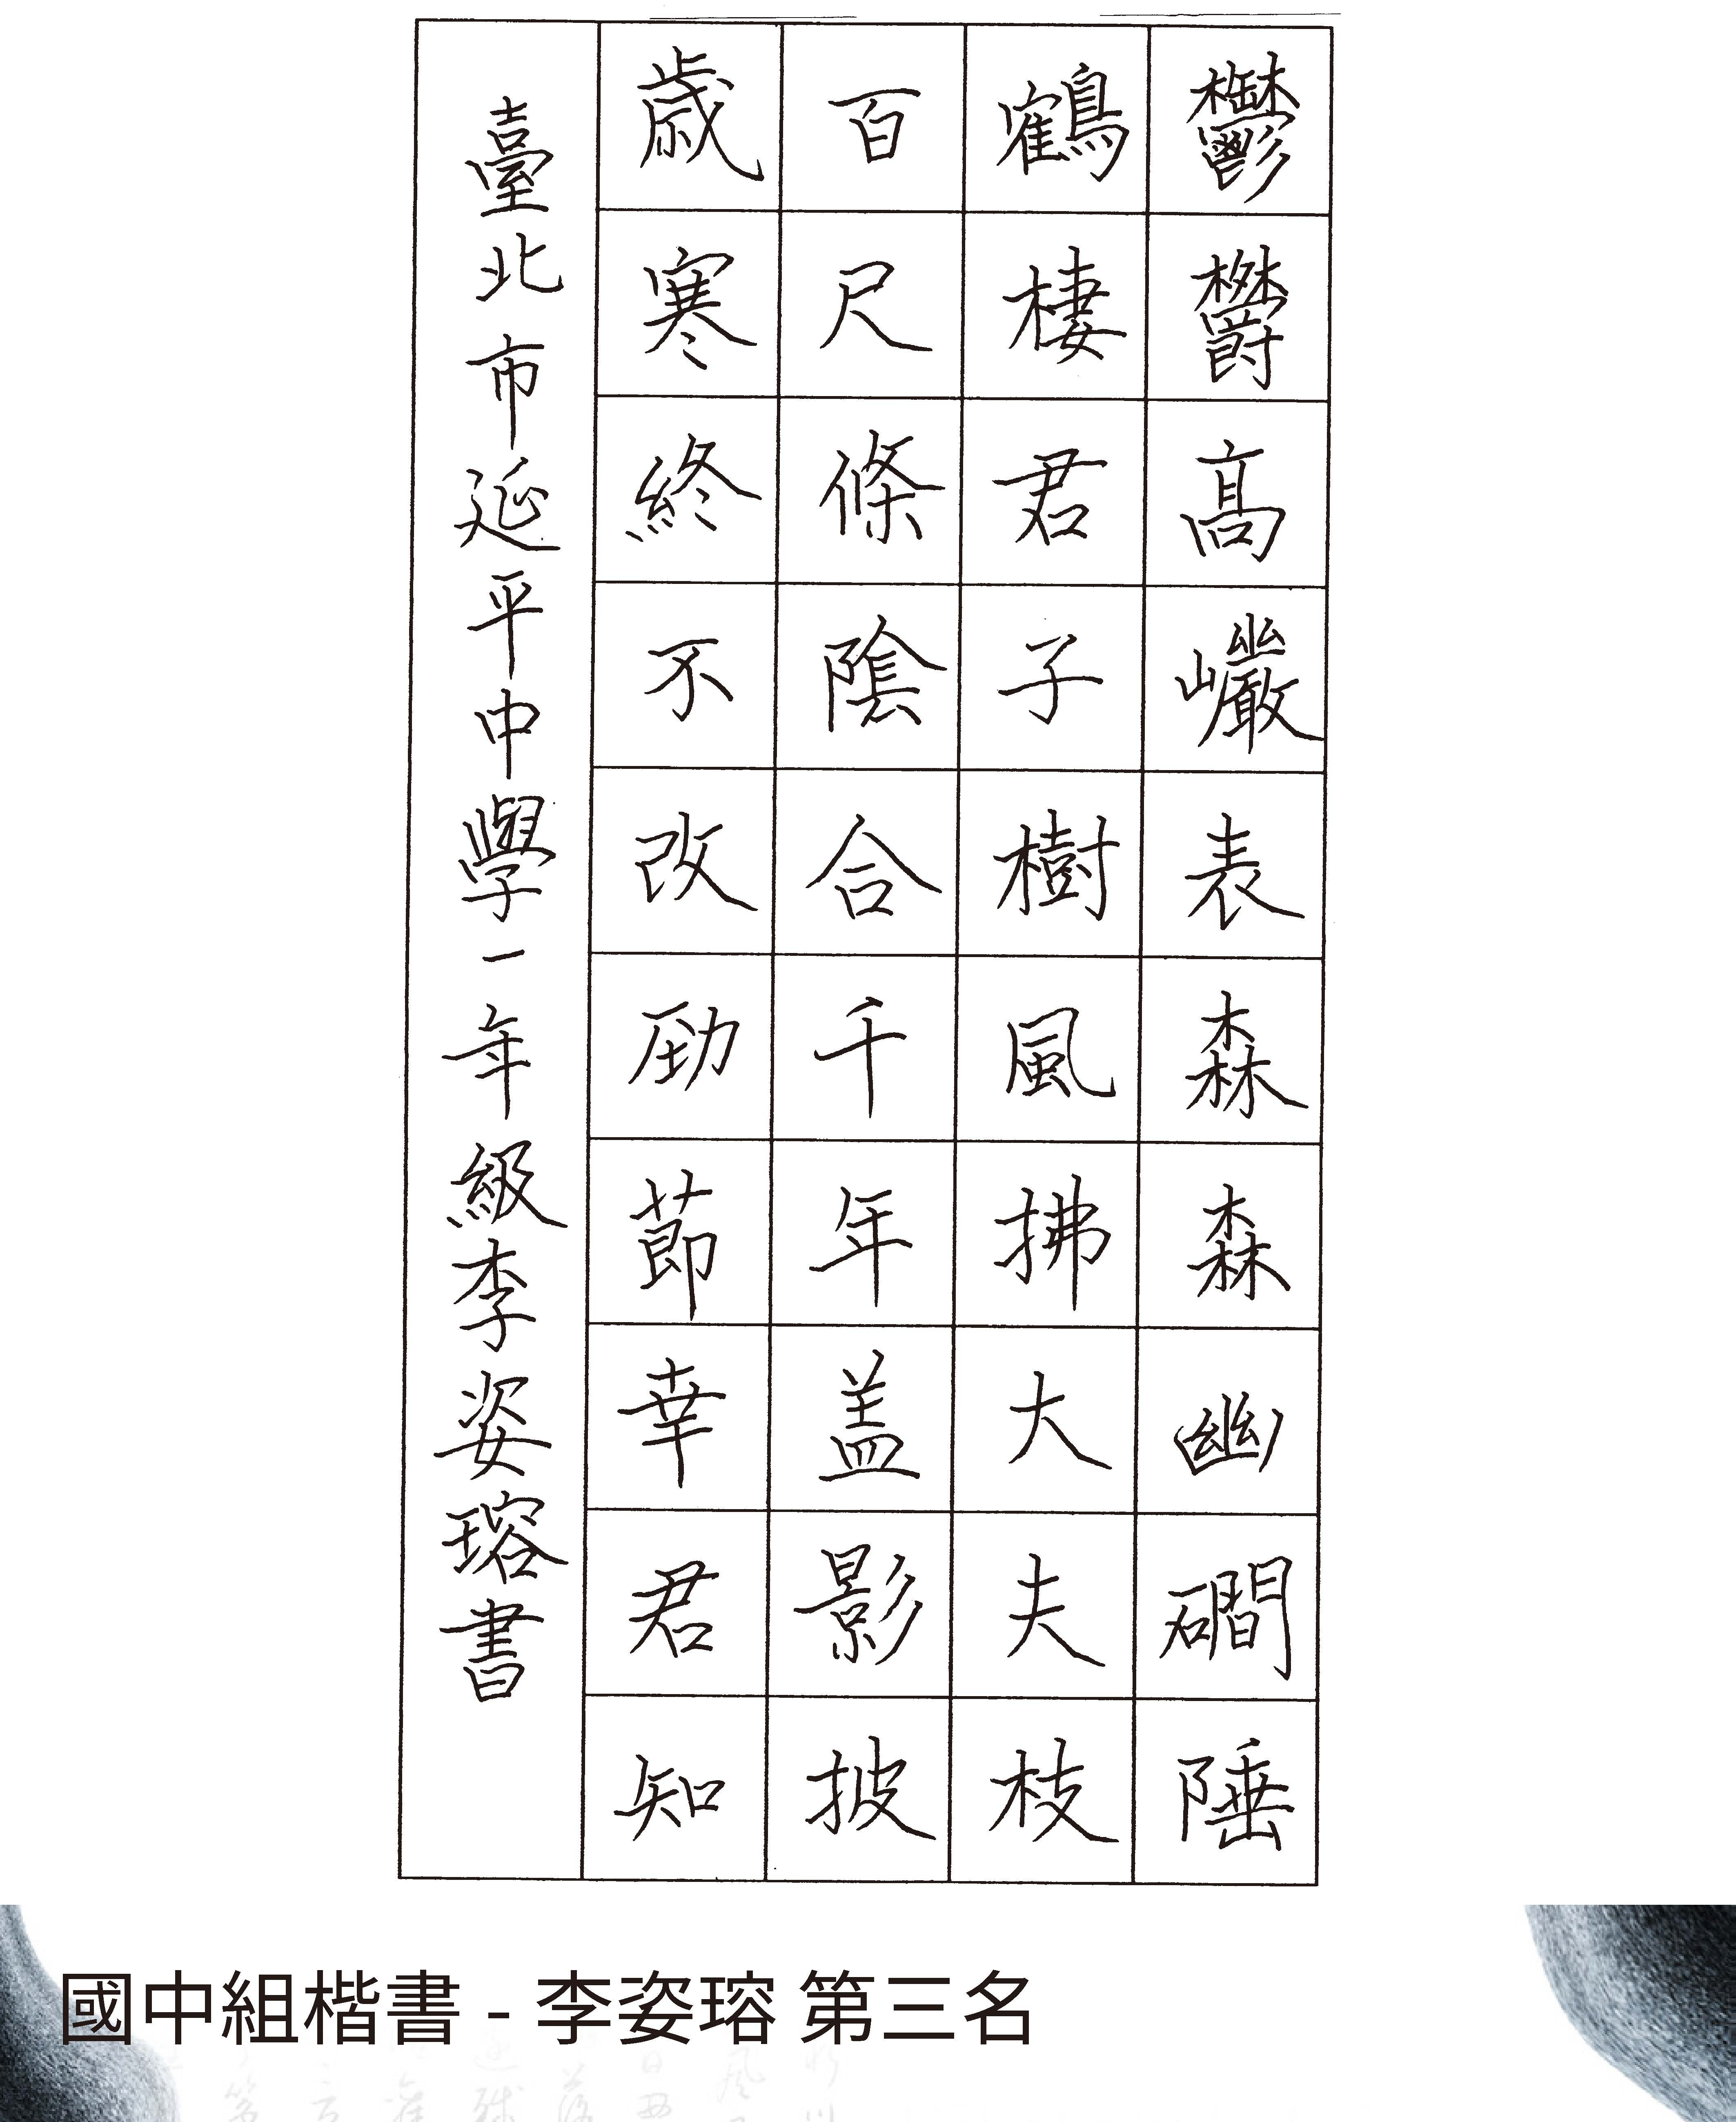 鬱鬱高巖表森森幽磵陲
鶴棲君子樹風拂大夫枝
百尺條陰合千年盖影披
歲寒終不改勁節幸君知
臺北市延平中學一年級李姿瑢書
國中組楷書 - 李姿瑢 第三名